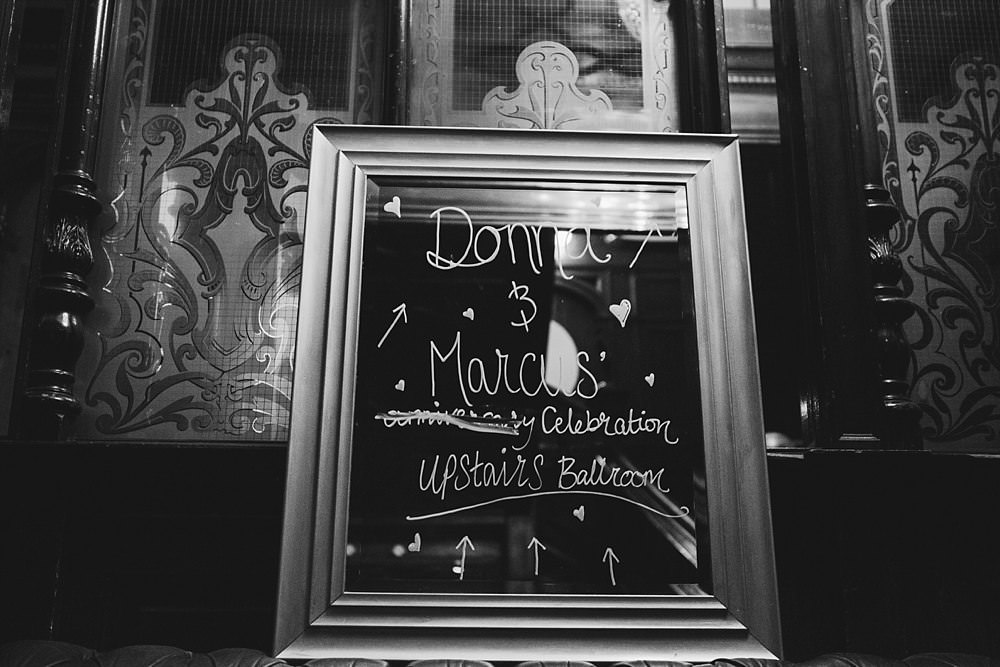 Donna
&
Marcus'
anniversary Celebration
Upstairs Ballroom